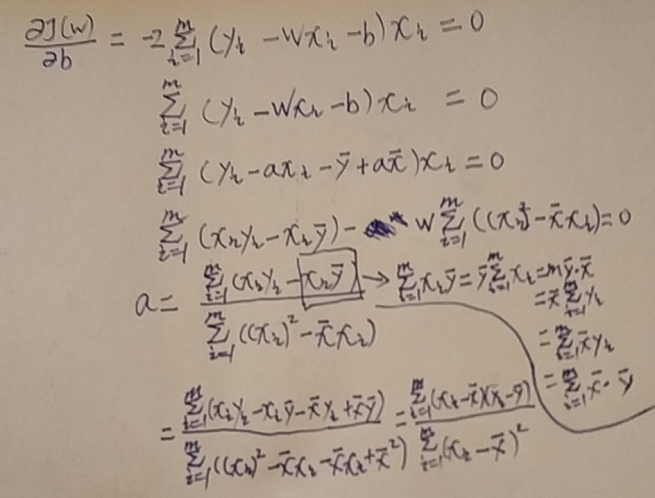 ∂J(w)/∂b = -2 Σ_{i=1}^{m} (y_i - wx_i - b) x_i = 0
Σ_{i=1}^{m} (y_i - wx_i - b) x_i = 0
Σ_{i=1}^{m} (y_i - ax_i - ȳ + ax̄) x_i = 0
Σ_{i=1}^{m} (x_i y_i - x_i ȳ) - w Σ_{i=1}^{m} ((x_i)² - x̄x_i) = 0
a = Σ_{i=1}^{m} (x_i y_i - x_i ȳ) / Σ_{i=1}^{m} ((x_i)² - x̄x_i) → Σ_{i=1}^{m} x_i ȳ = ȳ Σ_{i=1}^{m} x_i = mȳ·x̄
= x̄ Σ_{i=1}^{m} y_i
= Σ_{i=1}^{m} x̄y_i
= Σ_{i=1}^{m} x̄·ȳ
= Σ_{i=1}^{m} (x_i y_i - x_i ȳ - x̄y_i + x̄ȳ) / Σ_{i=1}^{m} ((x_i)² - x̄x_i - x̄x_i + x̄²) = Σ_{i=1}^{m} (x_i - x̄)(y_i - ȳ) / Σ_{i=1}^{m} (x_i - x̄)²